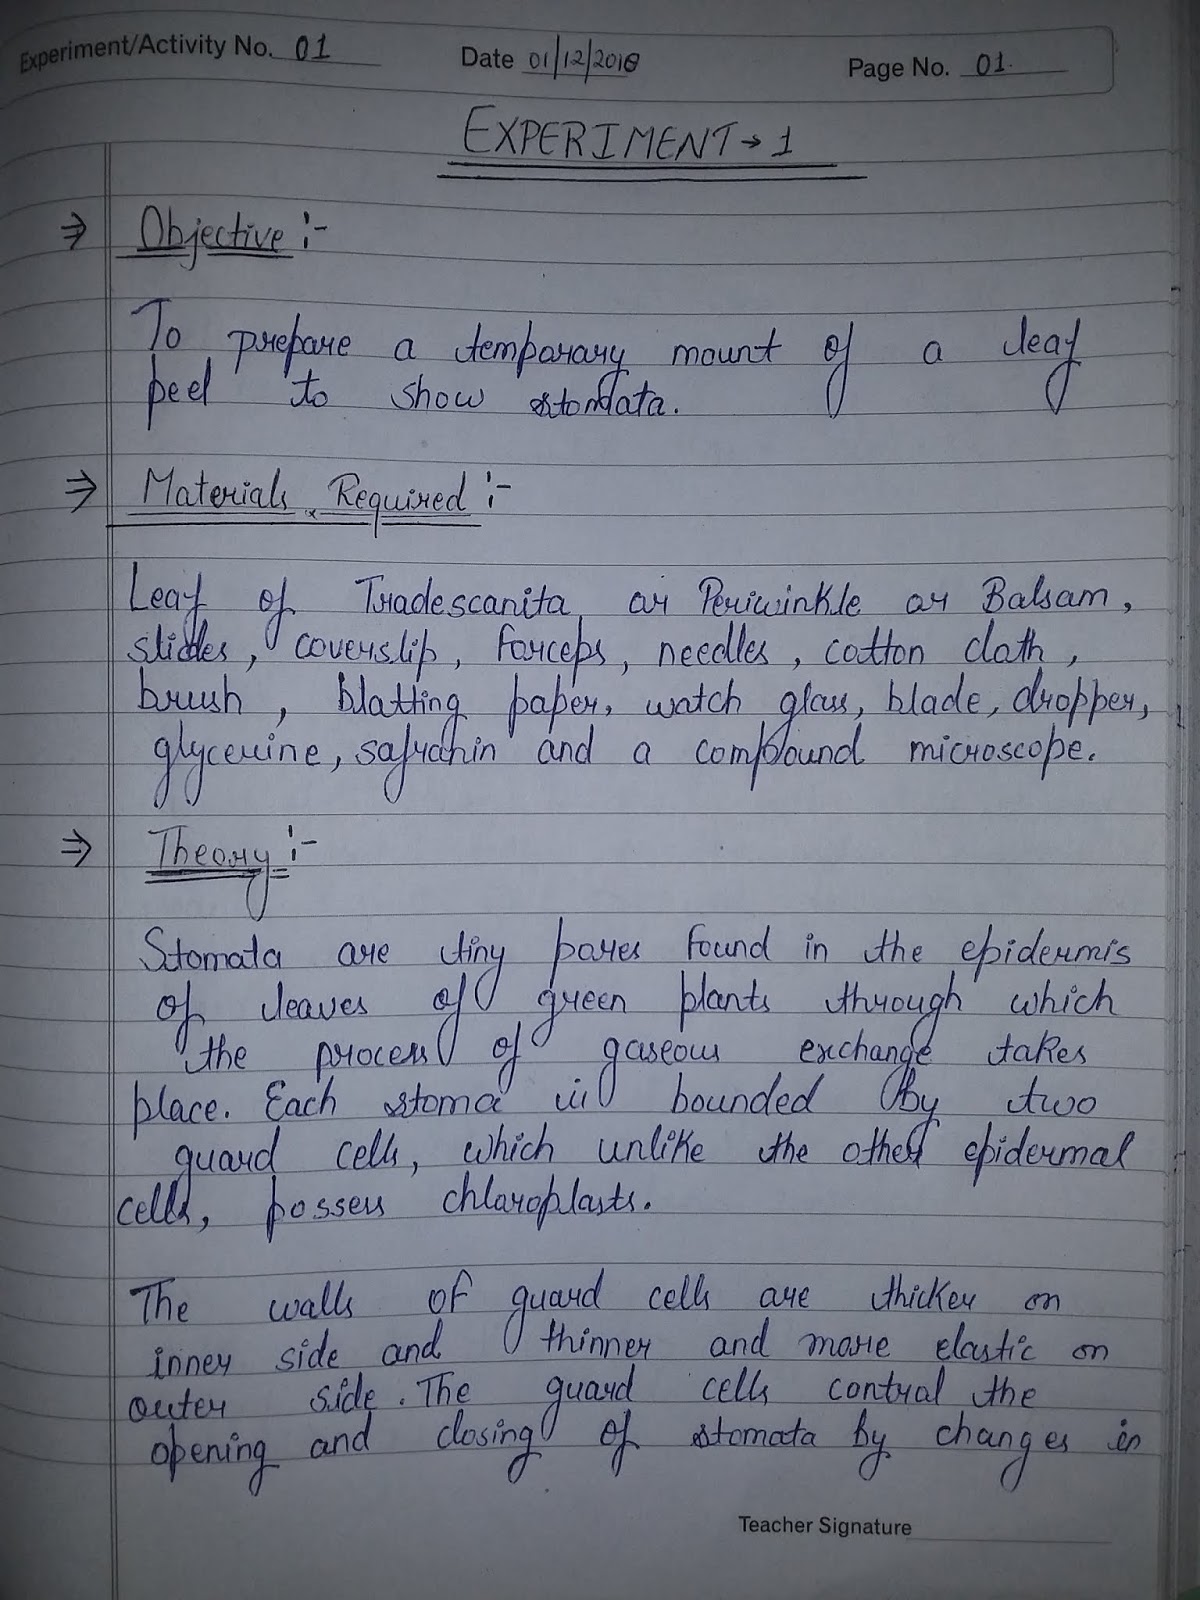 Experiment/Activity No. 01 Date 01/12/2016 Page No. 01.
EXPERIMENT → 1
⇒ Objective :-
To prepare a temporary mount of a leaf
peel to show stomata.
⇒ Materials Required :-
Leaf of Tradescanita or Periwinkle or Balsam,
slides, coverslip, forceps, needles, cotton cloth,
brush, blotting paper, watch glass, blade, dropper,
glycerine, safranin and a compound microscope.
⇒ Theory :-
Stomata are tiny pores found in the epidermis
of leaves of green plants through which
the process of gaseous exchange takes
place. Each stoma is bounded by two
guard cells, which unlike the other epidermal
cells, possess chloroplasts.
The walls of guard cells are thicker on
inner side and thinner and more elastic on
outer side. The guard cells control the
opening and closing of stomata by changes in
Teacher Signature